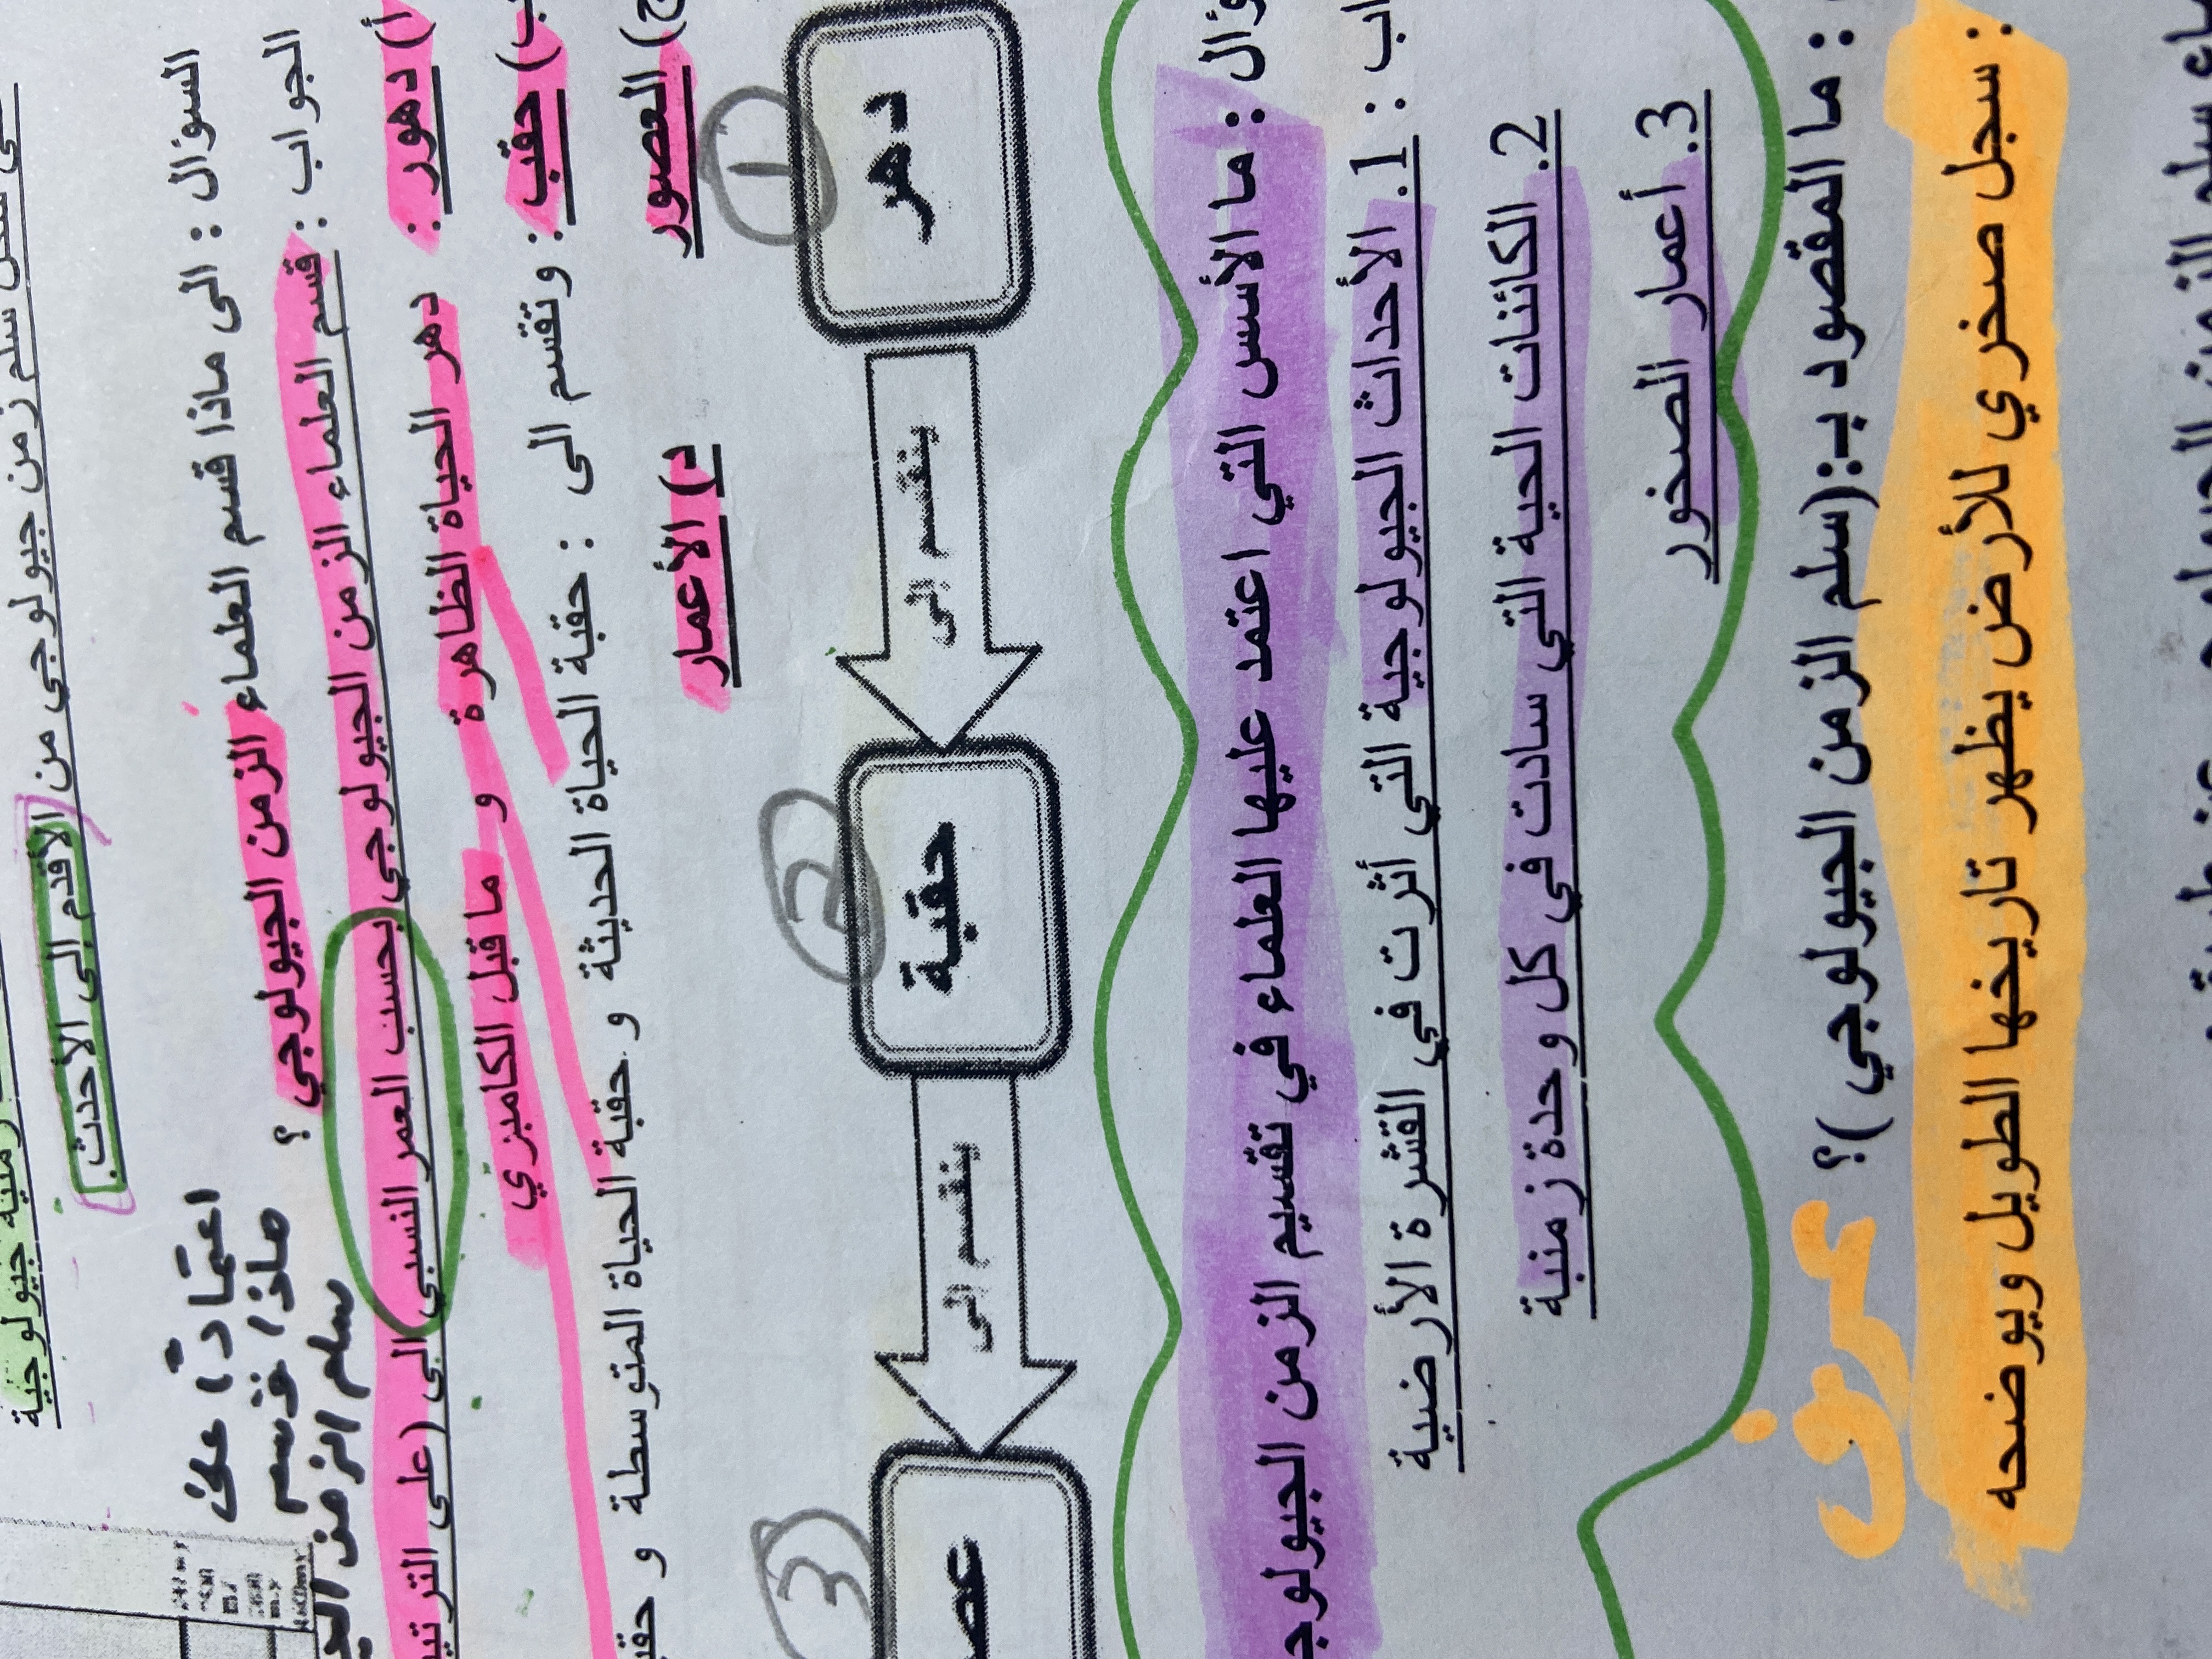 زمنية جيولوجية
سلم زمن جيولوجي من الأقدم إلى الأحدث.
اعتمادًا على
ماذا قسم
سلم الزمن
السؤال : الى ماذا قسم العلماء الزمن الجيولوجي ؟
الجواب : قسم العلماء الزمن الجيولوجي بحسب العمر النسبي الى (على
أ) دهور : دهر الحياة الظاهرة و ما قبل الكامبري
ب) حقب : وتقسم الى : حقبة الحياة الحديثة و حقبة الحياة المتوسطة و
ج) العصور د) الأعمار
1 2 3
دهر ينقسم إلى حقبة ينقسم إلى
: ما الأسس التي اعتمد عليها العلماء في تقسيم الزمن
: 1. الأحداث الجيولوجية التي أثرت في القشرة الأرضية
2. الكائنات الحية التي سادت في كل وحدة زمنية
3. أعمار الصخور
: ما المقصود بـ:(سلم الزمن الجيولوجي )؟ عرف
: سجل صخري للأرض يظهر تاريخها الطويل ويوضحه